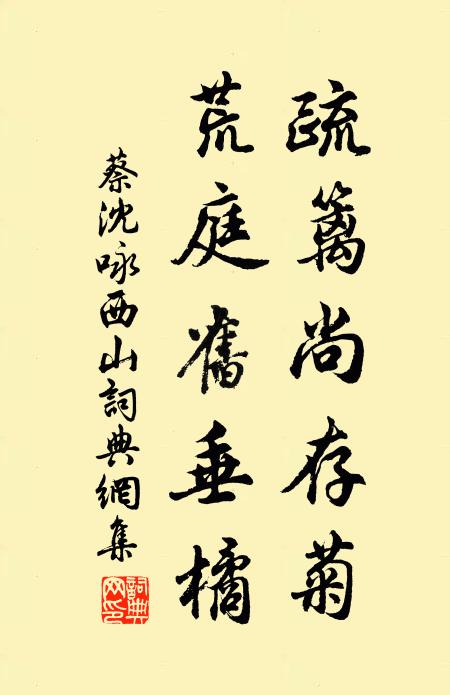 疏篱尚存菊
荒庭舊垂橘
蔡沈咏西山詞典網集
詞典網印